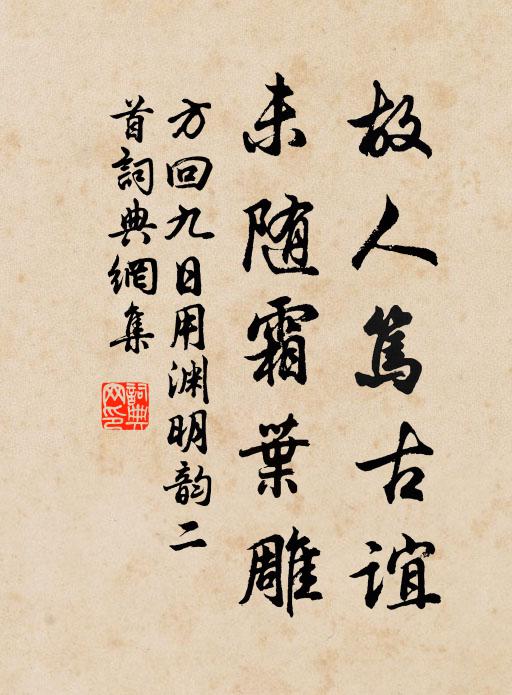 故人篤古誼
未随霜葉雕
方回九日用渊明韵二
首詞典網集
詞典網印